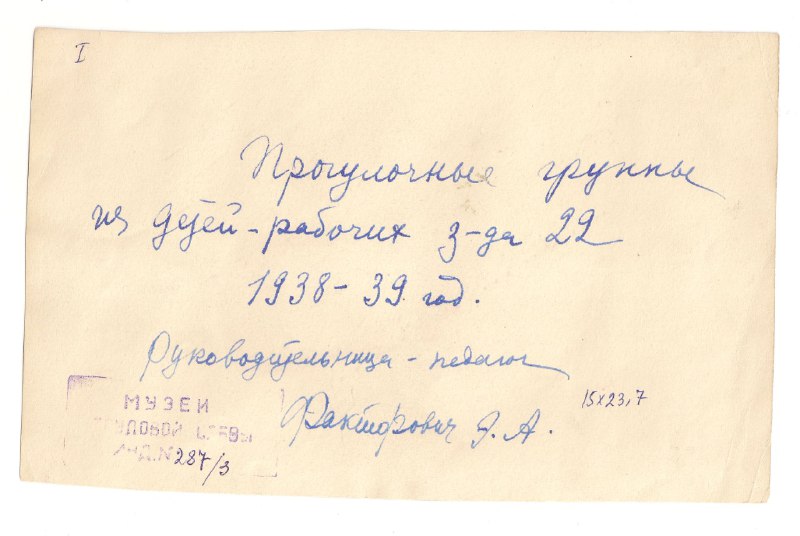 I
Прогулочные группы
из детей-рабочих з-да 22
1938-39 год.
Руководительница - педагог
Факторович Э. А.
15x23,7
МУЗЕЙ
ТРУДОВОЙ СЛАВЫ
ИНД.N 287/3